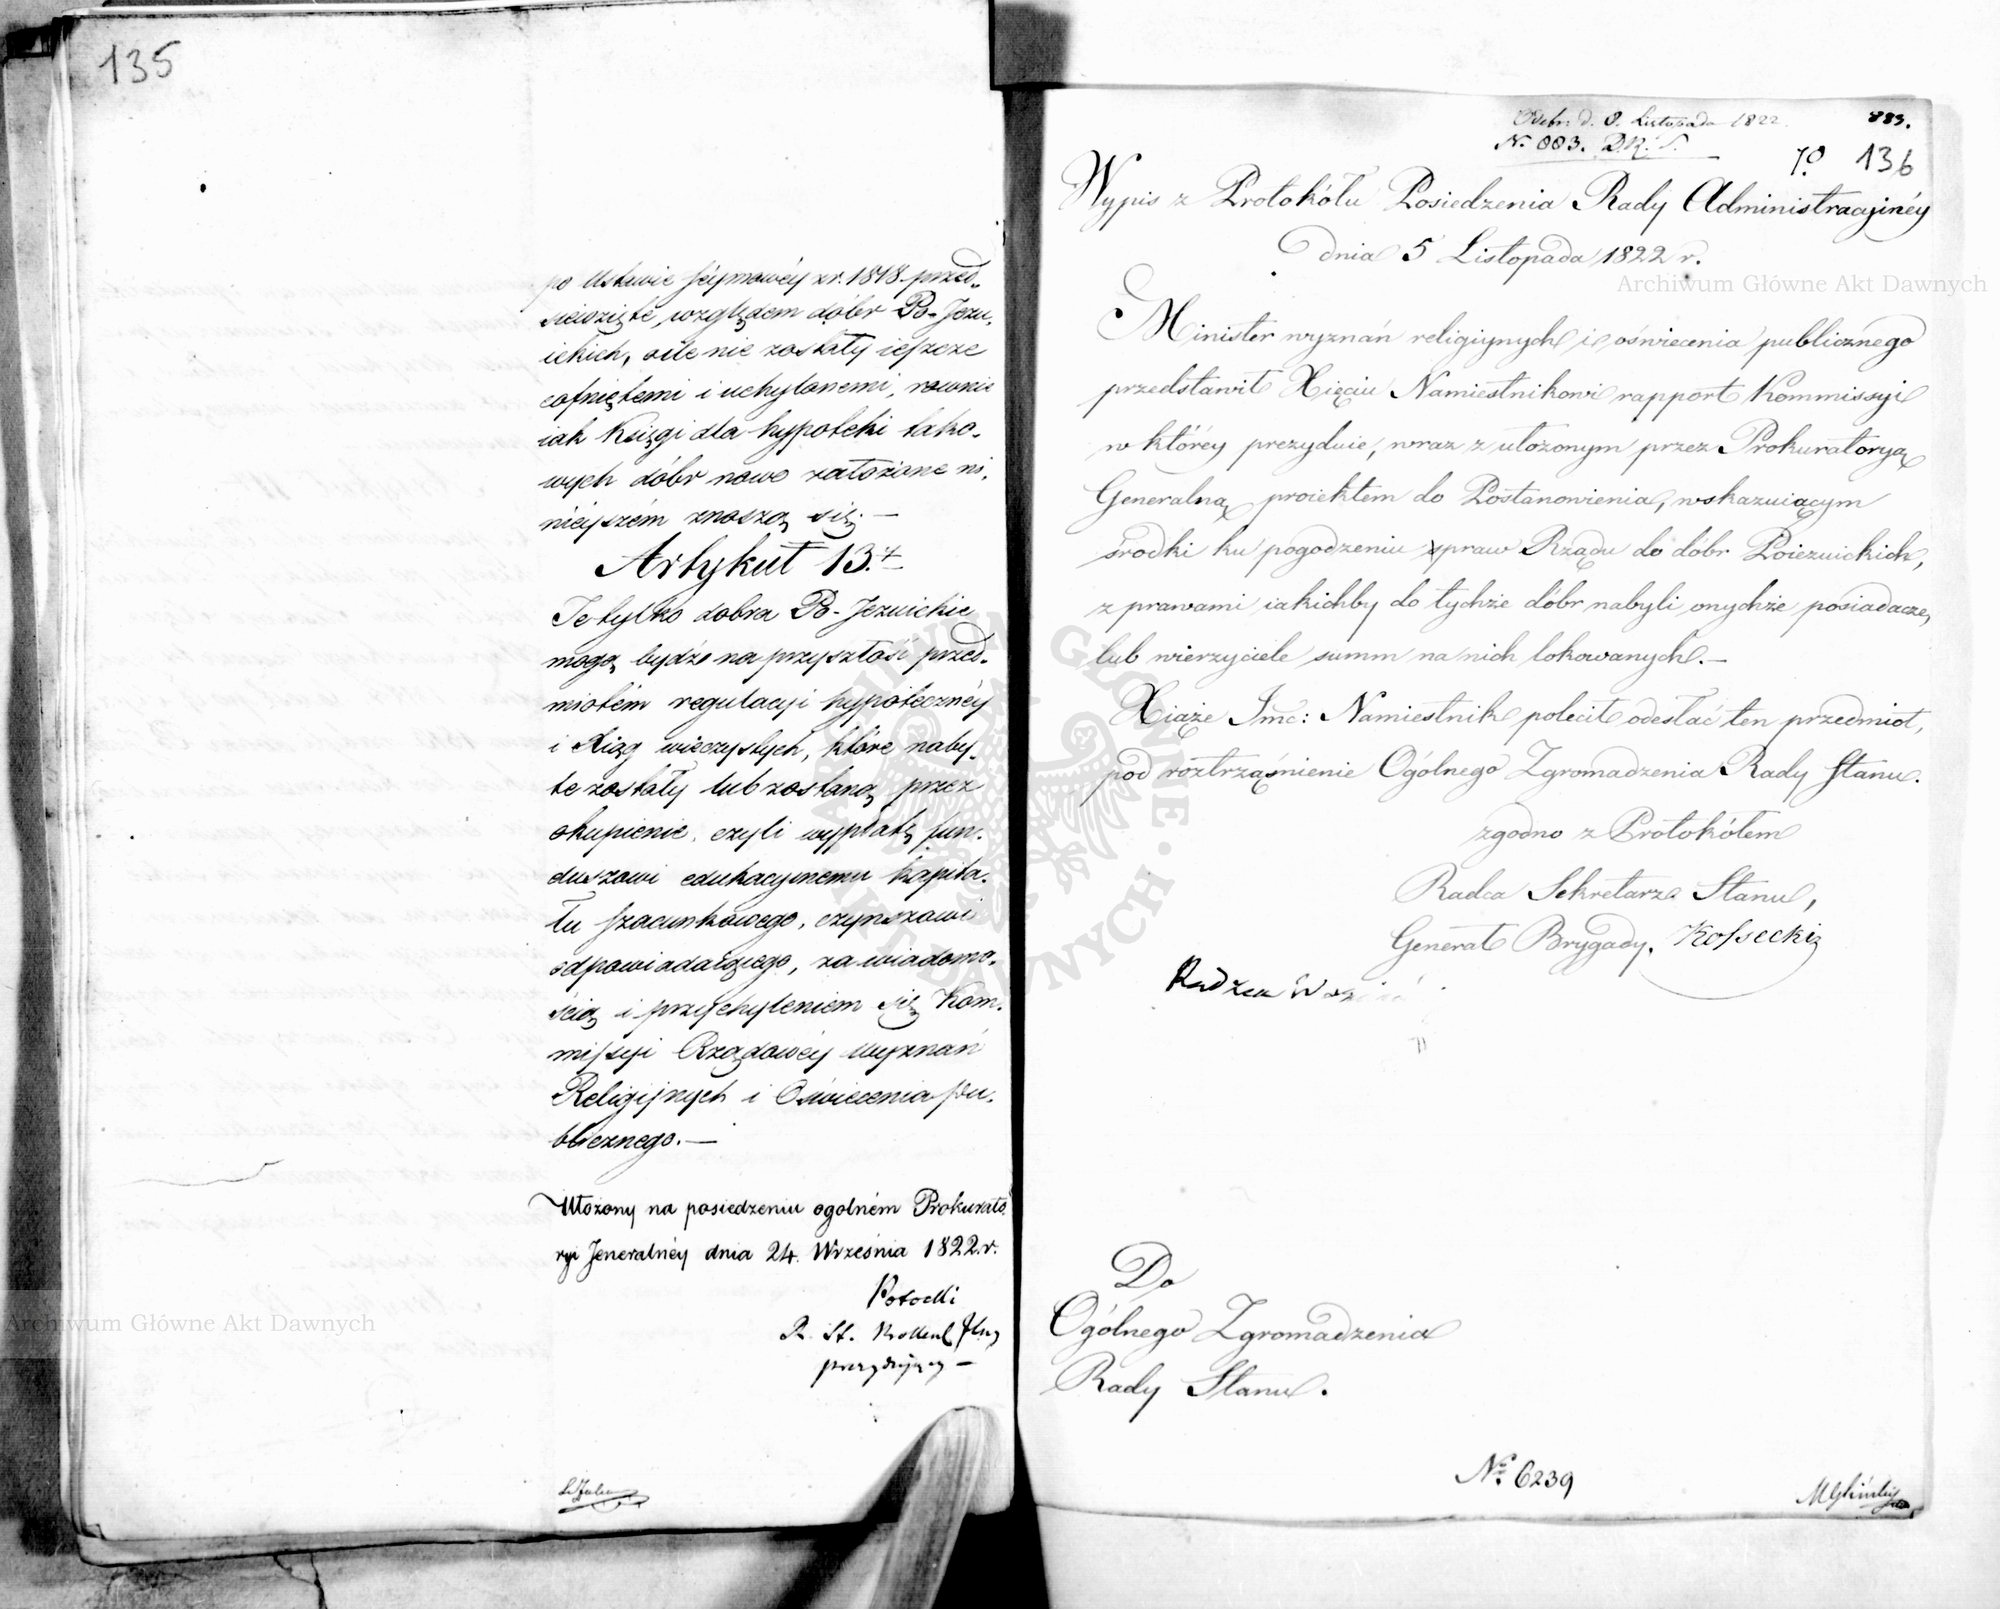 135
po Ustawie Seymowéy z r. 1818. przed-
sięwzięte, względem dóbr Po-Jezu-
ickich, o ile nie zostały ieszcze
cofniętemi i uchylonemi, rownie
iak Księgi dla hypoteki tako-
wych dóbr nowo założone ni-
nieyszém znoszą się. —
Artykuł 13.ty
Te tylko dobra Po-Jezuickie
mogą bydź na przyszłość przed-
miotém regulacyi hypotecznéy
i Xiąg wieczystych, które naby-
te zostały lub zostaną przez
okupienie, czyli wypłatę fun-
duszowi edukacyinemu kapita-
łu szacunkowego, czynszowi
odpowiadaiącego, za wiadomo-
ścią i przychyleniem się Kom-
missyi Rządowéy Wyznań
Religijnych i Oświecenia Pu-
blicznego. —
Ułożony na posiedzeniu ogolném Prokurato-
ryi Jeneralnéy dnia 24. Września 1822. r.
Potocki
R. St.
prezyduiący —
Odebr. d. 8. Listopada 1822.
883.
N. 883. D.R.S.
70. 136
Wypis z Protokółu Posiedzenia Rady Administracyinéy
dnia 5 Listopada 1822 r.
Minister wyznań religiynych i oświecenia publicznego
przedstawił Xięciu Namiestnikowi rapport Kommissyi
w któréy prezyduie, wraz z ułożonym przez Prokuratoryą
Generalną proiektem do Postanowienia, wskazuiącym
środki ku pogodzeniu spraw Rządu do dóbr Poiezuickich,
z prawami iakichby do tychże dóbr nabyli onychże posiadacze,
lub wierzyciele summ na nich lokowanych. —
Xiąże Jmć: Namiestnik polecił odesłać ten przedmiot,
pod roztrząśnienie Ogólnego Zgromadzenia Rady Stanu.
zgodno z Protokółem
Radca Sekretarz Stanu,
Generał Brygady, Kossecki
Radzca
Do
Ogólnego Zgromadzenia
Rady Stanu.
No. 6239
Archiwum Główne Akt Dawnych
Archiwum Główne Akt Dawnych
ARCHIWUM GŁÓWNE AKT DAWNYCH